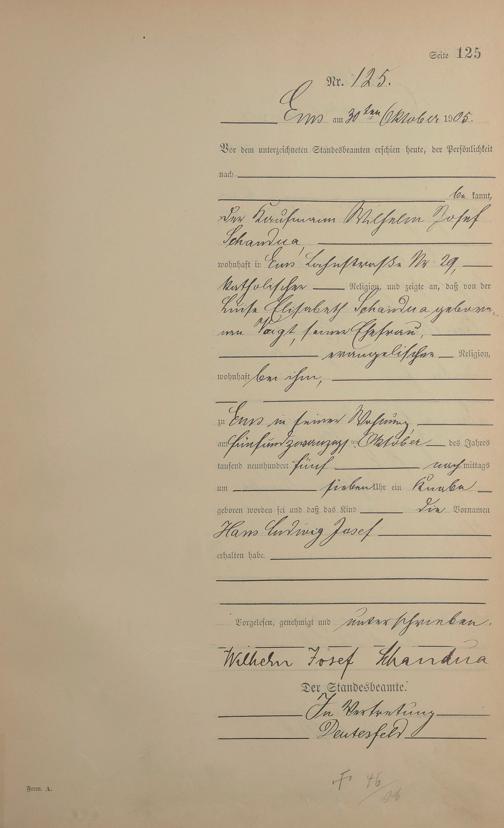 Seite 125
Nr. 125.
Ems am 30ten Oktober 1905.
Vor dem unterzeichneten Standesbeamten erschien heute, der Persönlichkeit
nach
be kannt,
der Kaufmann Wilhelm Josef
Schandua,
wohnhaft in Ems Lahnstraße Nr. 29,
katholischer Religion, und zeigte an, daß von der
Luise Elisabeth Schandua gebore-
nen Voigt, seiner Ehefrau,
evangelischer Religion,
wohnhaft bei ihm,
zu Ems in seiner Wohnung
am fünfundzwanzigsten Oktober des Jahres
tausend neunhundert fünf nachmittags
um sieben Uhr ein Knabe
geboren worden sei und daß das Kind die Vornamen
Hans Ludwig Josef
erhalten habe.
Vorgelesen, genehmigt und unterschrieben.
Wilhelm Josef Schandua
Der Standesbeamte.
In Vertretung
Form. A.